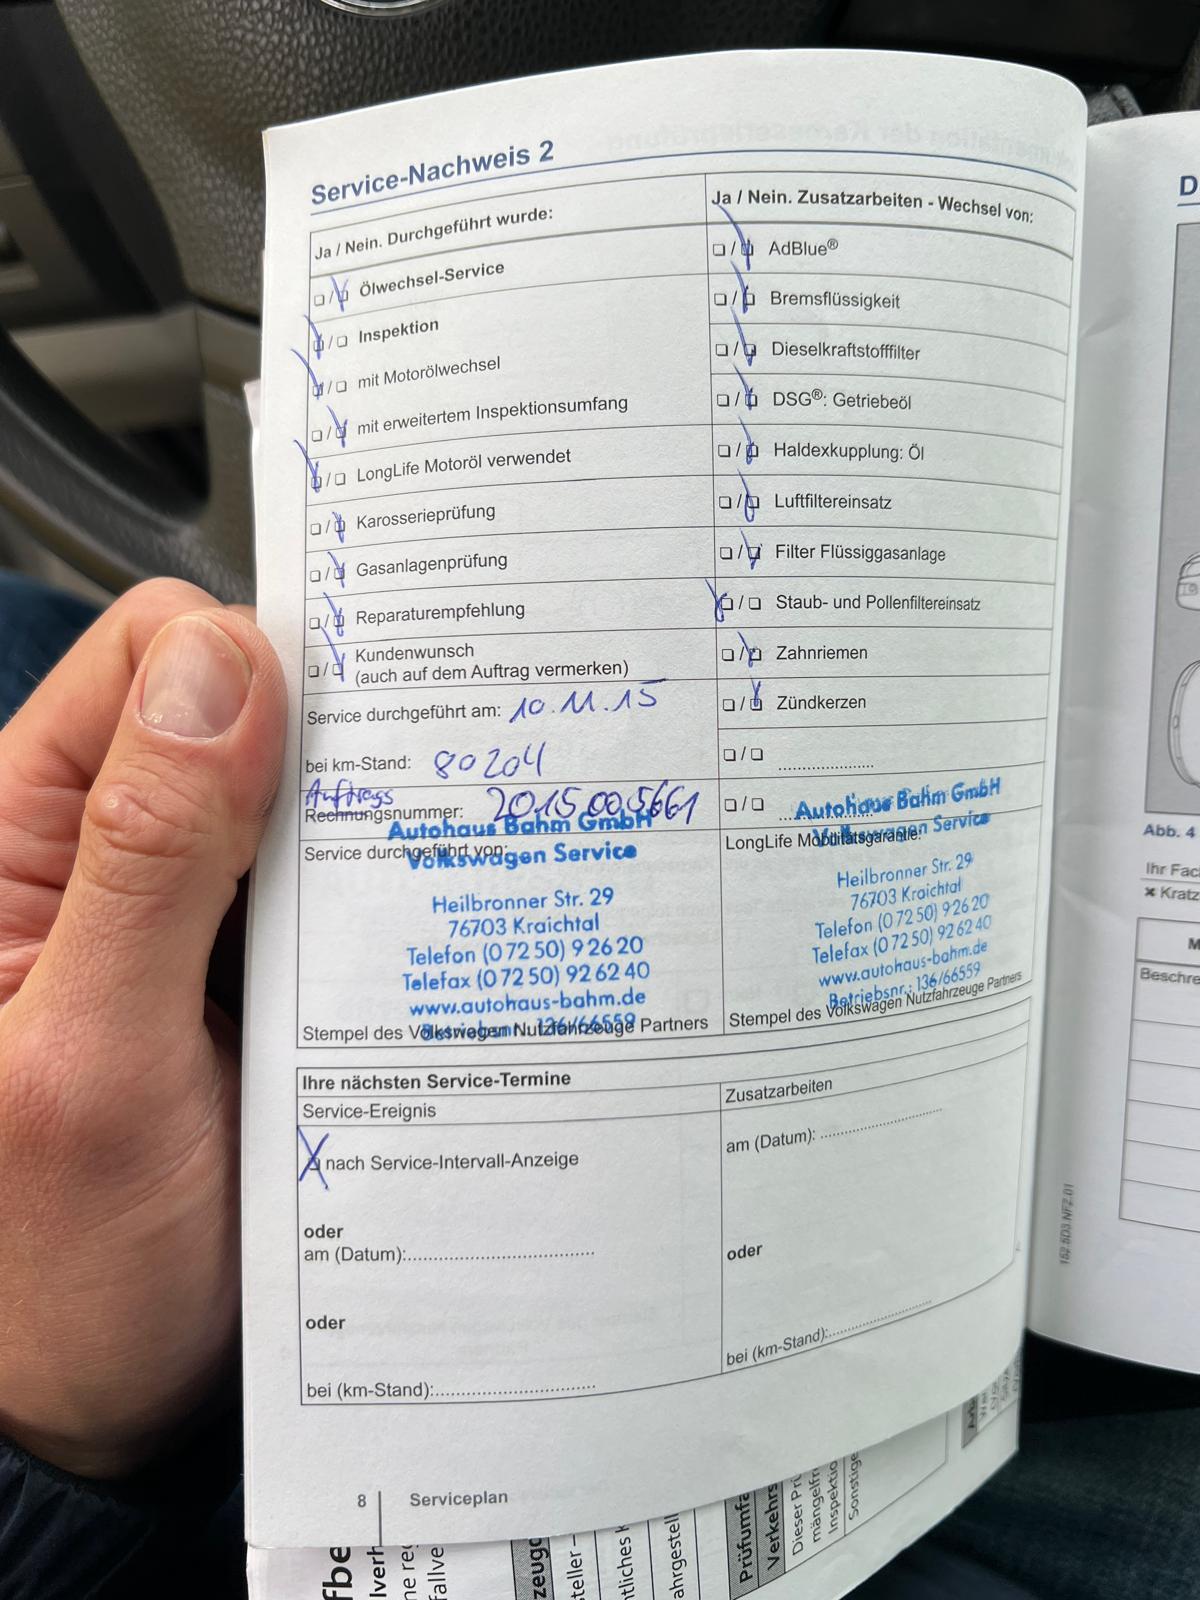 Service-Nachweis 2
Ja / Nein. Durchgeführt wurde:
❏ / ❏ Ölwechsel-Service
❏ / ❏ Inspektion
❏ / ❏ mit Motorölwechsel
❏ / ❏ mit erweitertem Inspektionsumfang
❏ / ❏ LongLife Motoröl verwendet
❏ / ❏ Karosserieprüfung
❏ / ❏ Gasanlagenprüfung
❏ / ❏ Reparaturempfehlung
❏ / ❏ Kundenwunsch
(auch auf dem Auftrag vermerken)
Service durchgeführt am: 10.11.15
bei km-Stand: 80204
Auftrags
Rechnungsnummer: 2015005661
Service durchgeführt von:
Autohaus Bahm GmbH
Volkswagen Service
Heilbronner Str. 29
76703 Kraichtal
Telefon (0 72 50) 9 26 20
Telefax (0 72 50) 92 62 40
www.autohaus-bahm.de
Betriebsnr.: 136/66559
Stempel des Volkswagen Nutzfahrzeuge Partners
Ja / Nein. Zusatzarbeiten - Wechsel von:
❏ / ❏ AdBlue®
❏ / ❏ Bremsflüssigkeit
❏ / ❏ Dieselkraftstofffilter
❏ / ❏ DSG®: Getriebeöl
❏ / ❏ Haldexkupplung: Öl
❏ / ❏ Luftfiltereinsatz
❏ / ❏ Filter Flüssiggasanlage
❏ / ❏ Staub- und Pollenfiltereinsatz
❏ / ❏ Zahnriemen
❏ / ❏ Zündkerzen
❏ / ❏ ....................
❏ / ❏ ....................
LongLife Mobilitätsgarantie:
Autohaus Bahm GmbH
Volkswagen Service
Heilbronner Str. 29
76703 Kraichtal
Telefon (0 72 50) 9 26 20
Telefax (0 72 50) 92 62 40
www.autohaus-bahm.de
Betriebsnr.: 136/66559
Stempel des Volkswagen Nutzfahrzeuge Partners
Ihre nächsten Service-Termine
Service-Ereignis
❏ nach Service-Intervall-Anzeige
oder
am (Datum):....................
oder
bei (km-Stand):....................
Zusatzarbeiten
am (Datum): ....................
oder
bei (km-Stand):....................
8 Serviceplan
D
Abb. 4
Ihr Fac
✖ Kratz
M
Beschre
152.5D3.NFZ.01